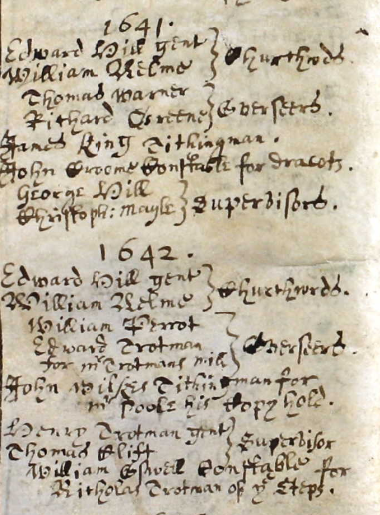 1641.
Edward Hill gent } Churchwds.
William Relme
Thomas Warner } Overseers.
Richard Greene
James King Tithingman.
John Croome Constable for dracots.
George Hill } Supervisors.
Christoph: Mayle
1642.
Edward Hill gent } Churchwords.
William Relme
William Perrot } Overseers.
Edward Trotman
for mr Trotmans mill
John Wilkes Tithingman for
mr Poole his Copy hold.
Henry Trotman gent } Supervisor
Thomas Clift
William Constable for
Nicholas Trotman of ye Steps.